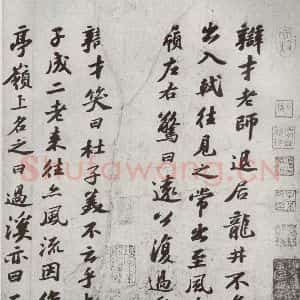 辯才老師退居龍井不
出入軾往見之常出至風
頎左右驚曰遠公復過
辯才笑曰杜子美不云乎
子成二老來往亦風流因
亭嶺上名之曰過溪亦曰
Shufawang.CN